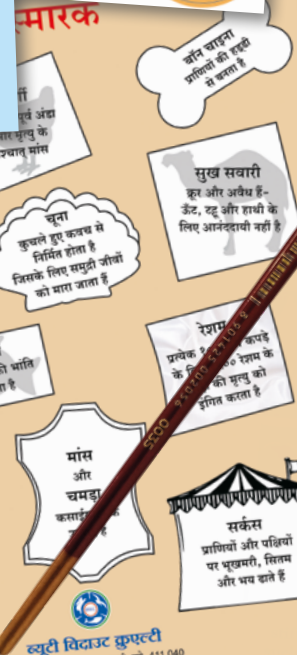 स्मारक
बॉन चाइना
प्राणियों की हड्डी
से बनता है
पूर्व अंडा
मृत्यु के
पश्चात् मांस
सुख सवारी
क्रूर और अवैध हैं-
ऊँट, टट्टू और हाथी के
लिए आनंददायी नहीं है
चूना
कुचले हुए कवच से
निर्मित होता है
जिसके लिए समुद्री जीवों
को मारा जाता हैं
रेशम
प्रत्येक कपड़े
के रेशम के
की मृत्यु को
इंगित करता है
की भांति
है
मांस
और
चमड़ा
है
सर्कस
प्राणियों और पक्षियों
पर भूखमरी, सितम
और भय ढाते हैं
8 901425 002056 0035
ब्यूटी विदाउट क्रुएल्टी
411 040